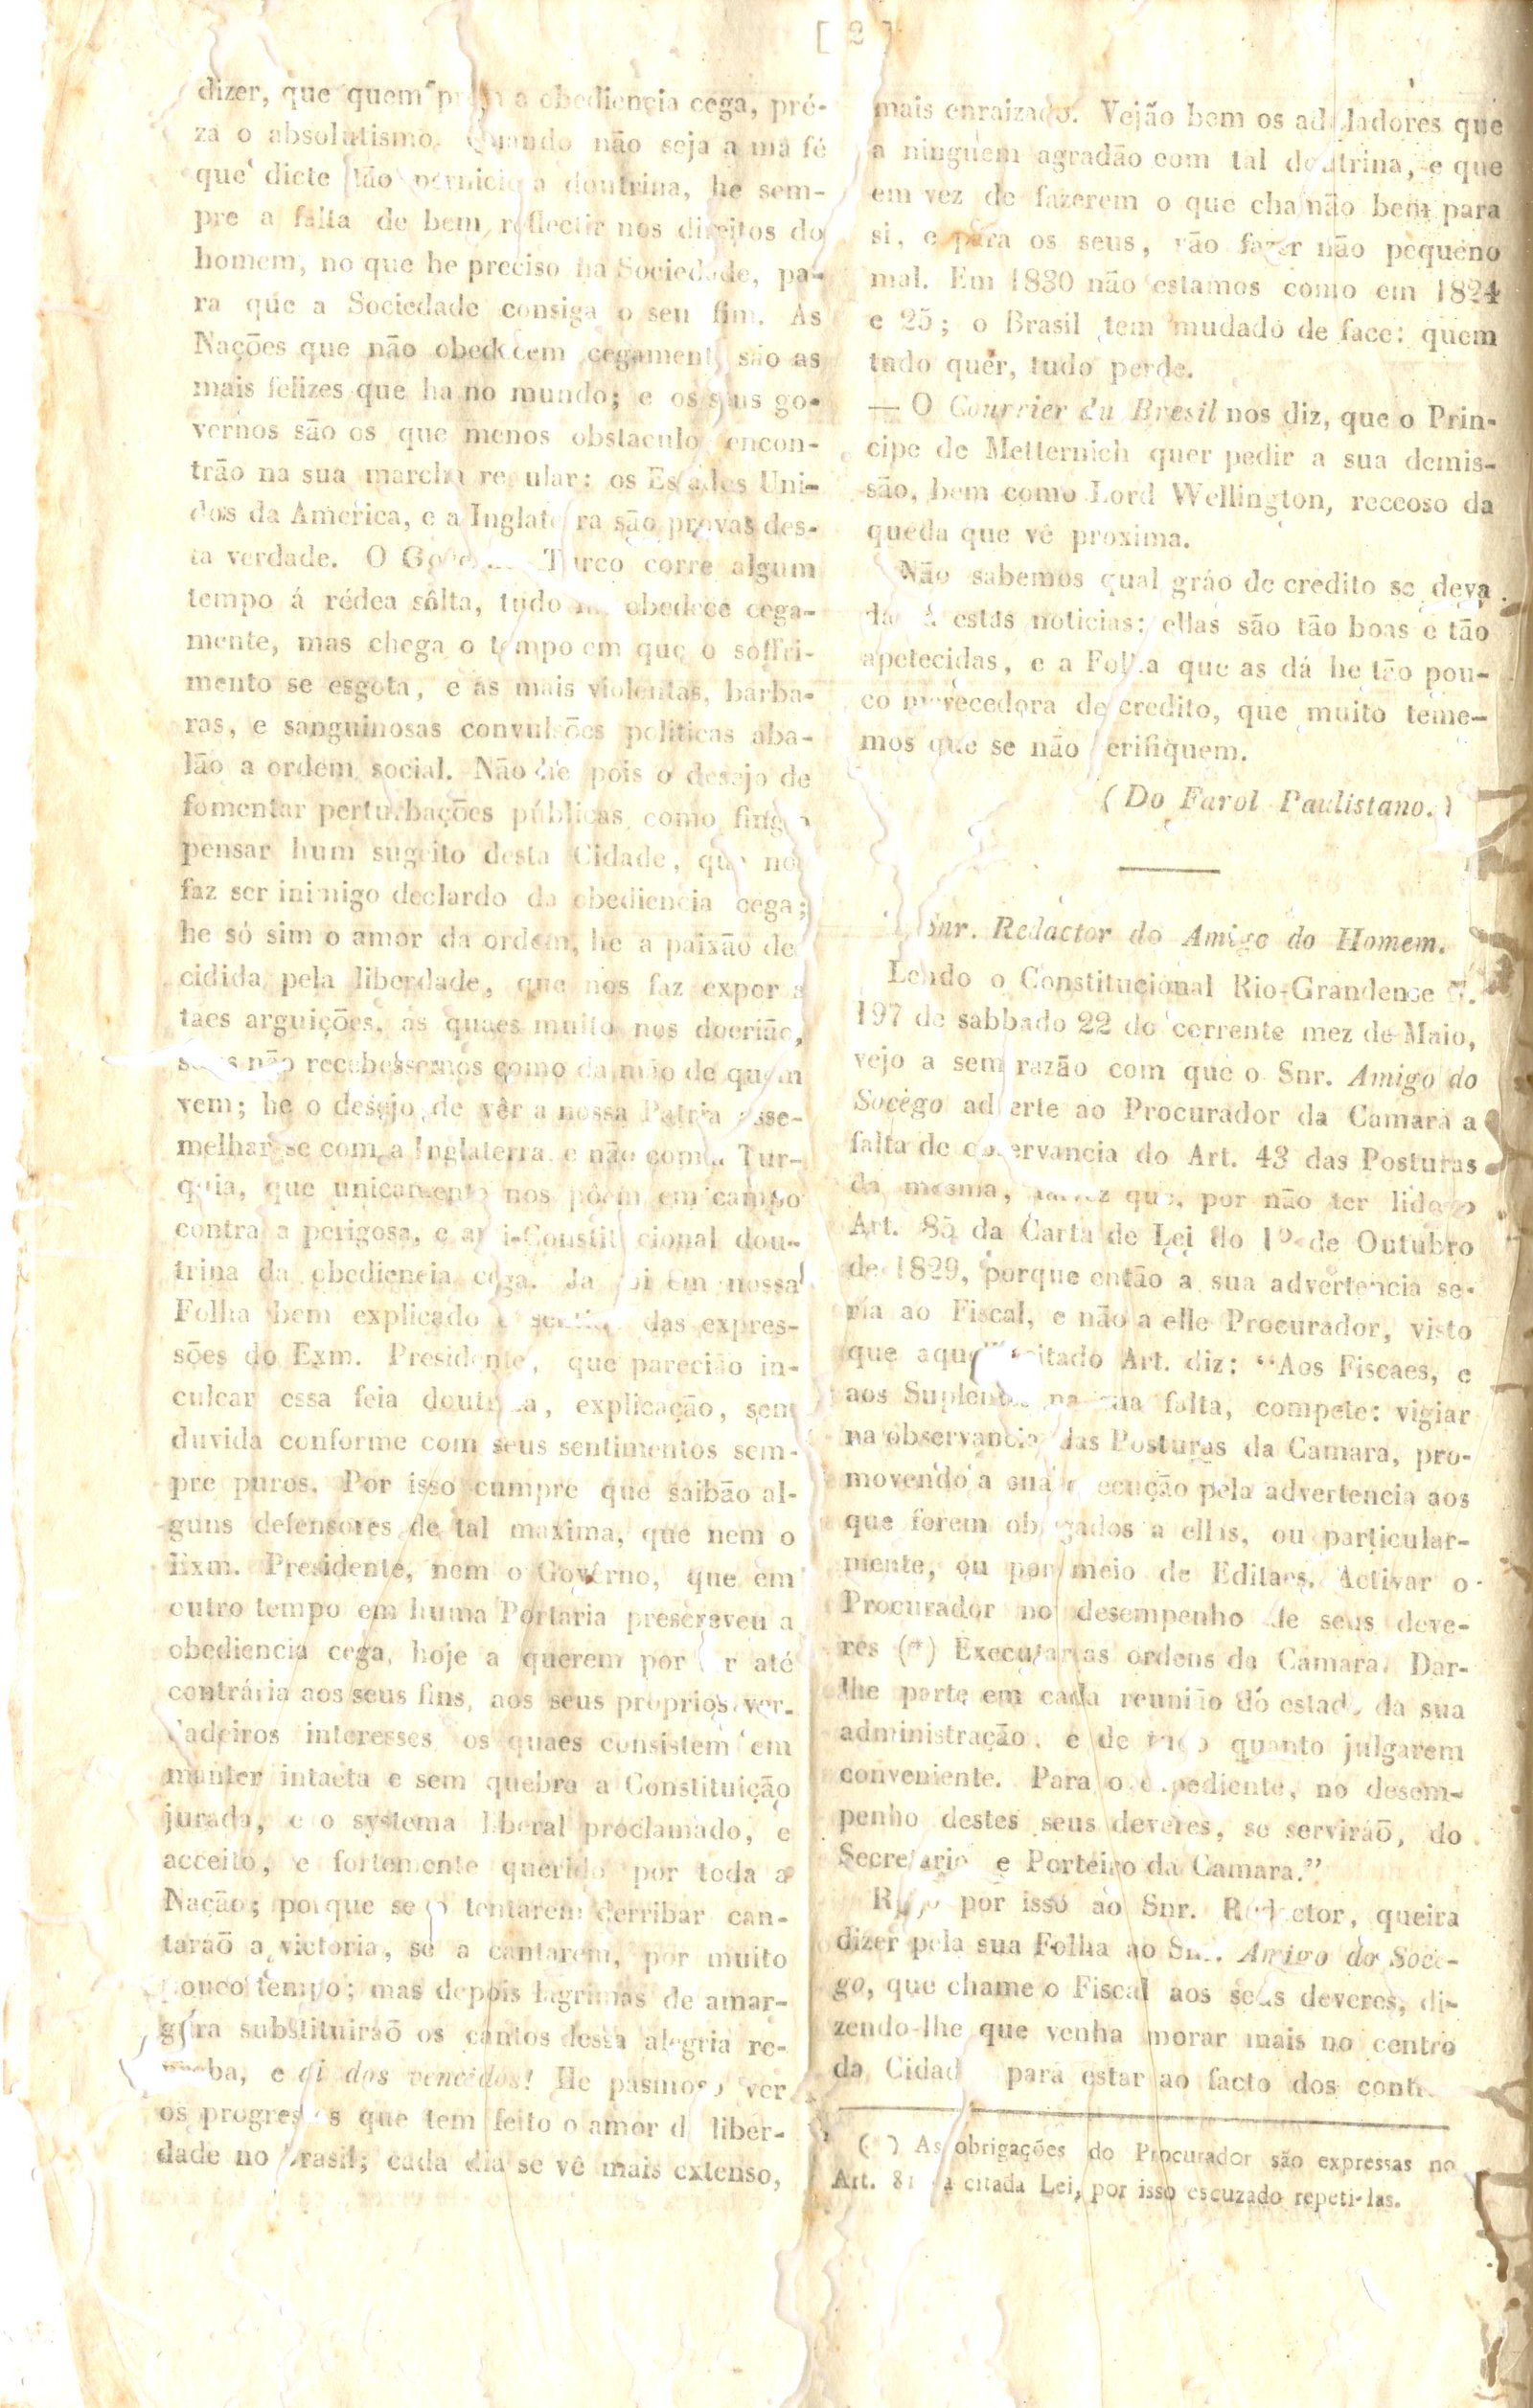 [ 2 ]
dizer, que quem a obediencia cega, pré-
za o absolutismo. Quando não seja a má fé
que dicte tão perniciosa doutrina, he sem-
pre a falta de bem reflectir nos direitos do
homem, no que he preciso na Sociedade, pa-
ra que a Sociedade consiga o seu fim. As
Nações que não obedecem cegamente são as
mais felizes que ha no mundo; e os seus go-
vernos são os que menos obstaculo encon-
trão na sua marcha regular: os Estados Uni-
dos da America, e a Inglaterra são provas des-
ta verdade. O Governo Turco corre algum
tempo á rédea sôlta, tudo obedece cega-
mente, mas chega o tempo em que o soffri-
mento se esgota, e as mais violentas, barba-
ras, e sanguinosas convulsões politicas aba-
lão a ordem social. Não he pois o desejo de
fomentar perturbações públicas, como finge
pensar hum sugeito desta Cidade, que nos
faz ser inimigo declardo da obediencia cega;
he só sim o amor da ordem, he a paixão de
cidida pela liberdade, que nos faz expor a
taes arguições, ás quaes muito nos doerião,
se as não recebessemos como da mão de quem
vem; he o desejo de vêr a nossa Patria asse-
melhar-se com a Inglaterra e não com a Tur-
quia, que unicamente nos põem em campo
contra a perigosa, e anti-Constitucional dou-
trina da obediencia cega. Ja foi em nossa
Folha bem explicado o sentido das expres-
sões do Exm. Presidente, que parecião in-
culcar essa feia doutrina, explicação, sem
duvida conforme com seus sentimentos sem-
pre puros. Por isso cumpre que saibão al-
guns defensores de tal maxima, que nem o
Exm. Presidente, nem o Governo, que em
outro tempo em huma Portaria prescreveu a
obediencia cega, hoje a querem por ser até
contrária aos seus fins, aos seus proprios ver-
dadeiros interesses, os quaes consistem em
manter intacta e sem quebra a Constituição
jurada, e o systema liberal proclamado, e
acceito, e fortemente querido por toda a
Nação; porque se o tentarem derribar can-
taraõ a victoria, se a cantarem, por muito
pouco tempo; mas depois lagrimas de amar-
gura substituiráõ os cantos dessa alegria re-
e ai dos vencidos! He pasmoso ver
os progressos que tem feito o amor da liber-
dade no Brasil; cada dia se vê mais extenso,
mais enraizado. Vejão bem os aduladores que
a ninguem agradão com tal doutrina, e que
em vez de fazerem o que chamão bem para
si, e para os seus, vão fazer não pequeno
mal. Em 1830 não estamos como em 1824
e 25; o Brasil tem mudado de face: quem
tudo quer, tudo perde.
— O Courrier du Bresil nos diz, que o Prin-
cipe de Metternich quer pedir a sua demis-
são, bem como Lord Wellington, receoso da
queda que vê proxima.
Não sabemos qual gráo de credito se deva
dar á estas noticias: ellas são tão boas e tão
apetecidas, e a Folha que as dá he tão pou-
co merecedora de credito, que muito teme-
mos que se não verifiquem.
(Do Farol Paulistano.)
Snr. Redactor do Amigo do Homem.
Lendo o Constitucional Rio-Grandense N.
197 de sabbado 22 do corrente mez de Maio,
vejo a sem razão com que o Snr. Amigo do
Socego adverte ao Procurador da Camara a
falta de observancia do Art. 43 das Posturas
da mesma, talvez que, por não ter lido o
Art. 85 da Carta de Lei do 1º de Outubro
de 1829, porque então a sua advertencia se-
ria ao Fiscal, e não a elle Procurador, visto
que aquelle citado Art. diz: “Aos Fiscaes, e
aos Suplentes na sua falta, compete: vigiar
na observancia das Posturas da Camara, pro-
movendo a sua execução pela advertencia aos
que forem obrigados a ellas, ou particular-
mente, ou por meio de Editaes. Activar o
Procurador no desempenho de seus deve-
res (*) Executar as ordens da Camara. Dar-
lhe parte em cada reunião do estado da sua
administração, e de tudo quanto julgarem
conveniente. Para o expediente, no desem-
penho destes seus deveres, se serviráõ, do
Secretario e Porteiro da Camara.”
Rogo por isso ao Snr. Redactor, queira
dizer pela sua Folha ao Snr. Amigo do Soce-
go, que chame o Fiscal aos seus deveres, di-
zendo-lhe que venha morar mais no centro
da Cidade para estar ao facto dos
(*) As obrigações do Procurador são expressas no
Art. 81 da citada Lei, por isso escuzado repeti-las.